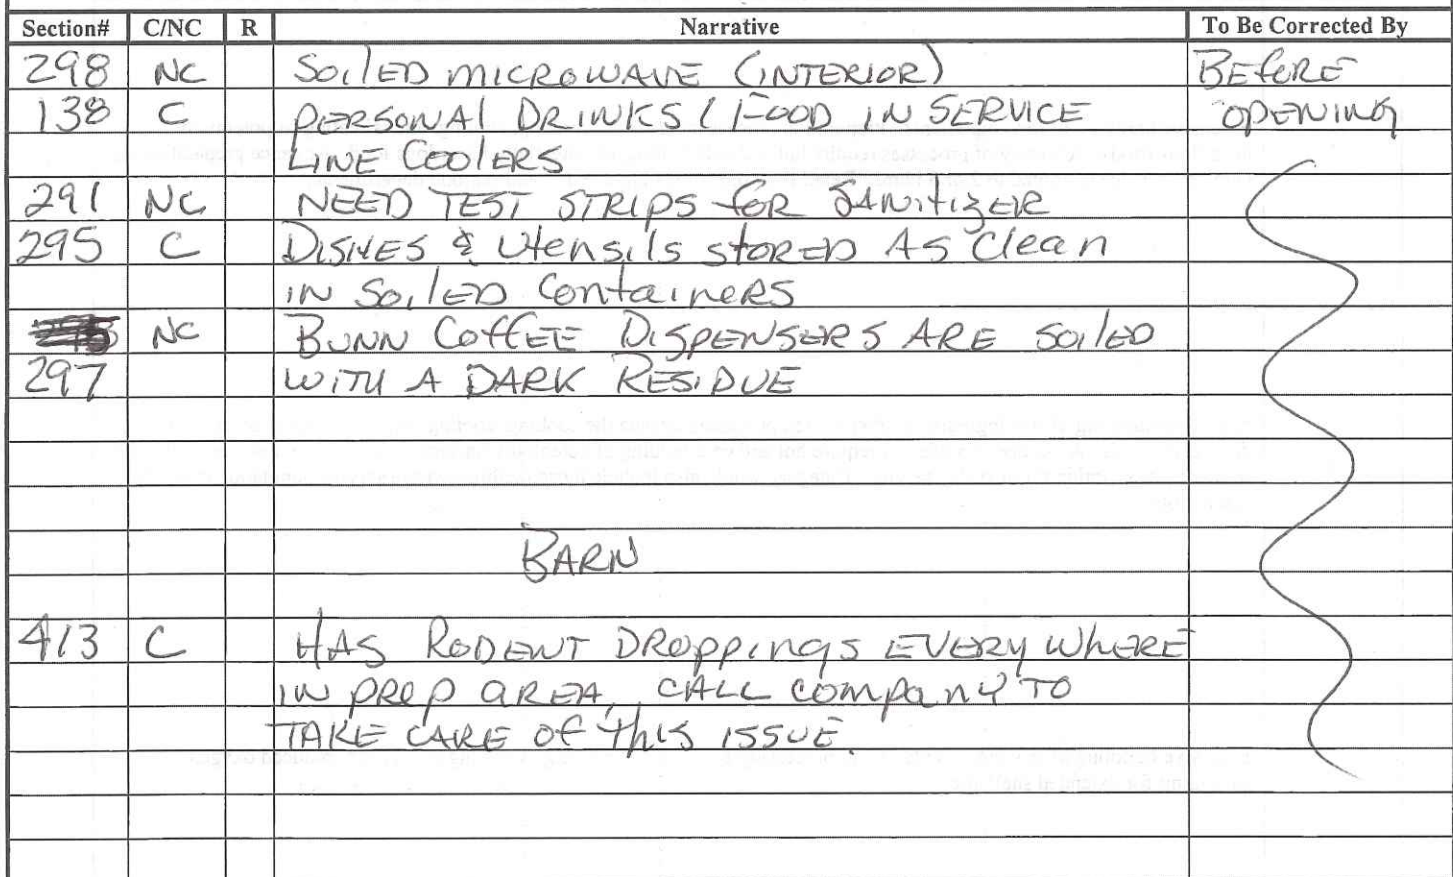 Section# C/NC R Narrative To Be Corrected By
298 NC SOILED MICROWAVE (INTERIOR) BEFORE
138 C PERSONAL DRINKS / FOOD IN SERVICE OPENING
LINE COOLERS
291 NC NEED TEST STRIPS FOR SANITIZER
295 C DISHES & UTENSILS STORED AS CLEAN
IN SOILED CONTAINERS
NC BUNN COFFEE DISPENSERS ARE SOILED
297 WITH A DARK RESIDUE
BARN
413 C HAS RODENT DROPPINGS EVERYWHERE
IN PREP AREA, CALL COMPANY TO
TAKE CARE OF THIS ISSUE.